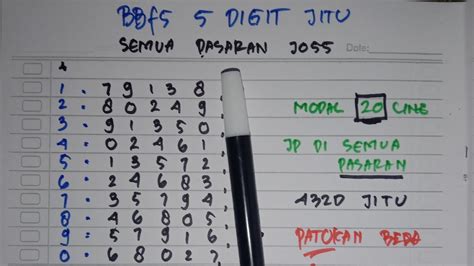 BBFS 5 DIGIT JITU
SEMUA PASARAN JOSS Date:
1 = 7 9 1 3 8
2 = 8 0 2 4 9
3 = 9 1 3 5 0
4 = 0 2 4 6 1
5 = 1 3 5 7 2
6 = 2 4 6 8 3
7 = 3 5 7 9 4
8 = 4 6 8 0 5
9 = 5 7 9 1 6
0 = 6 8 0 2 7
MODAL 20 LINE
JP DI SEMUA
PASARAN
432D JITU
PATOKAN BEBAS